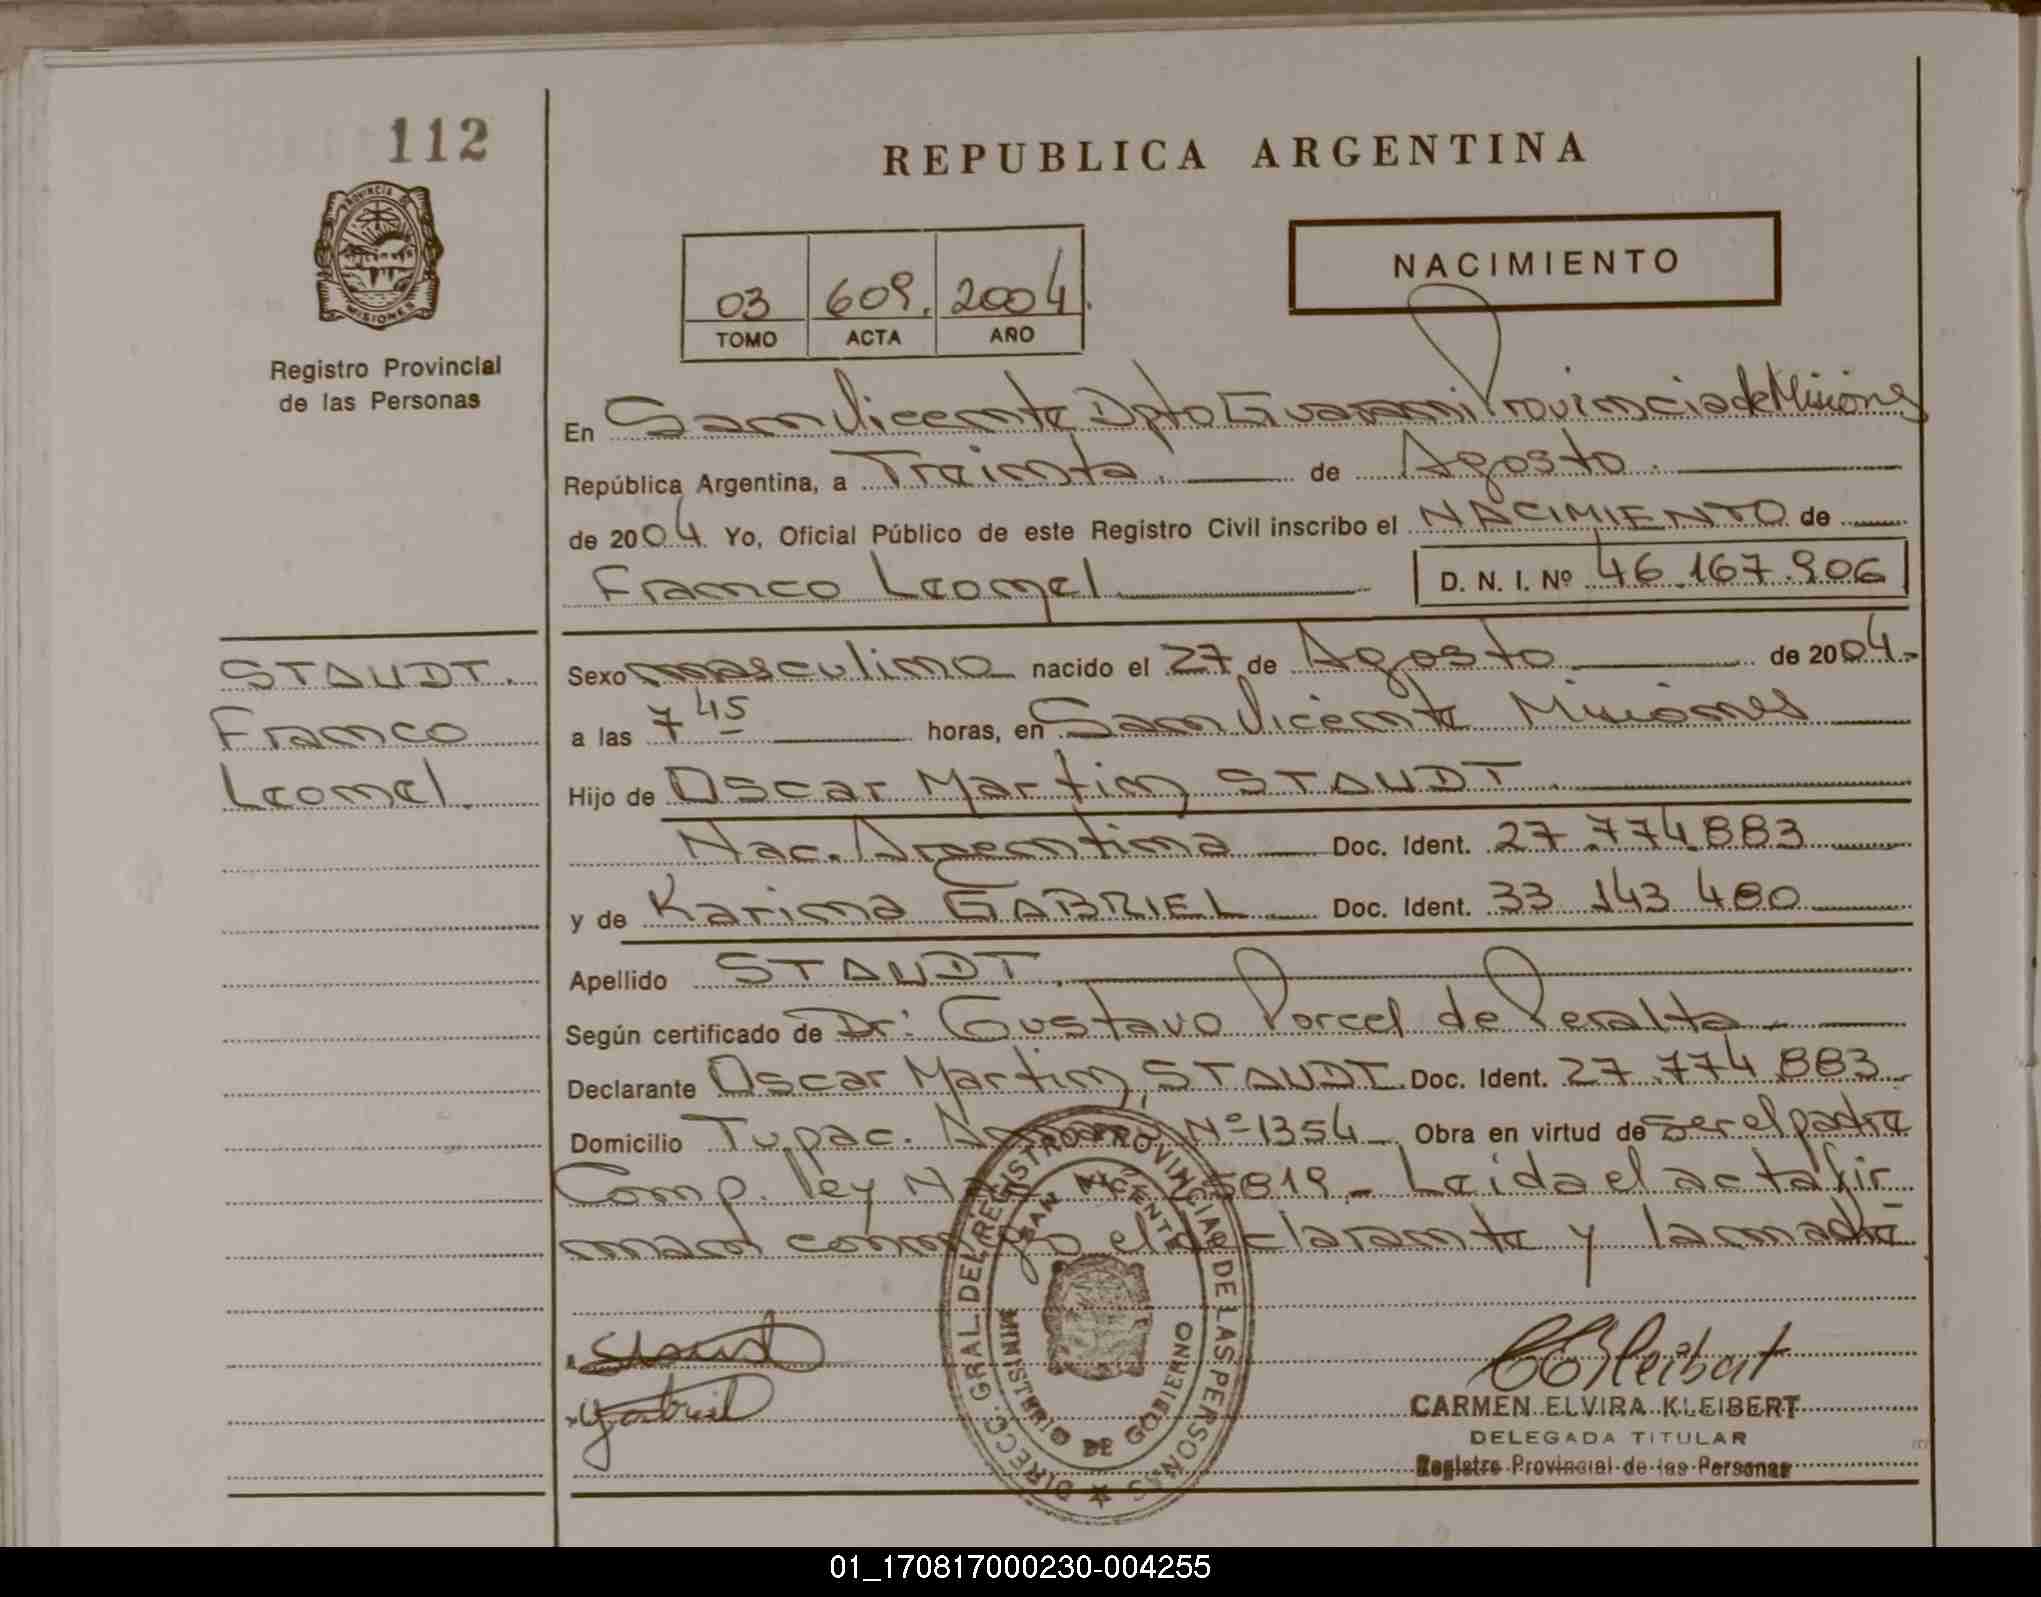 112
PROVINCIA DE
MISIONES
Registro Provincial
de las Personas
REPUBLICA ARGENTINA
NACIMIENTO
03 609. 2004.
TOMO ACTA AÑO
En San Vicente Dpto Guarani Provincia de Misiones
República Argentina, a Treinta. de Agosto.
de 2004. Yo, Oficial Público de este Registro Civil inscribo el NACIMIENTO de
Franco Leonel D. N. I. Nº 46.167.906
STAUDT.
Franco
Leonel.
Sexo masculino nacido el 27 de Agosto de 2004.-
a las 7 45 horas, en San Vicente Misiones
Hijo de Oscar Martin STAUDT.
Nac. Argentina Doc. Ident. 27.774.883
y de Karina GABRIEL Doc. Ident. 33 143 480
Apellido STAUDT.
Según certificado de Dr: Gustavo Porcel de Peralta.
Declarante Oscar Martin STAUDT. Doc. Ident. 27.774.883
Domicilio Tupac. Amaru Nº 1354 Obra en virtud de ser el padre
Comp. ley 25819.- Leida el acta fir
man conmigo el declarante y la madre
Staudt
Gabriel
DIRECC. GRAL. DEL REGISTRO PROVINCIAL DE LAS PERSONAS
SAN VICENTE
MINISTERIO DE GOBIERNO
CEKleibert
CARMEN ELVIRA KLEIBERT
DELEGADA TITULAR
Registro Provincial de las Personas
01_170817000230-004255